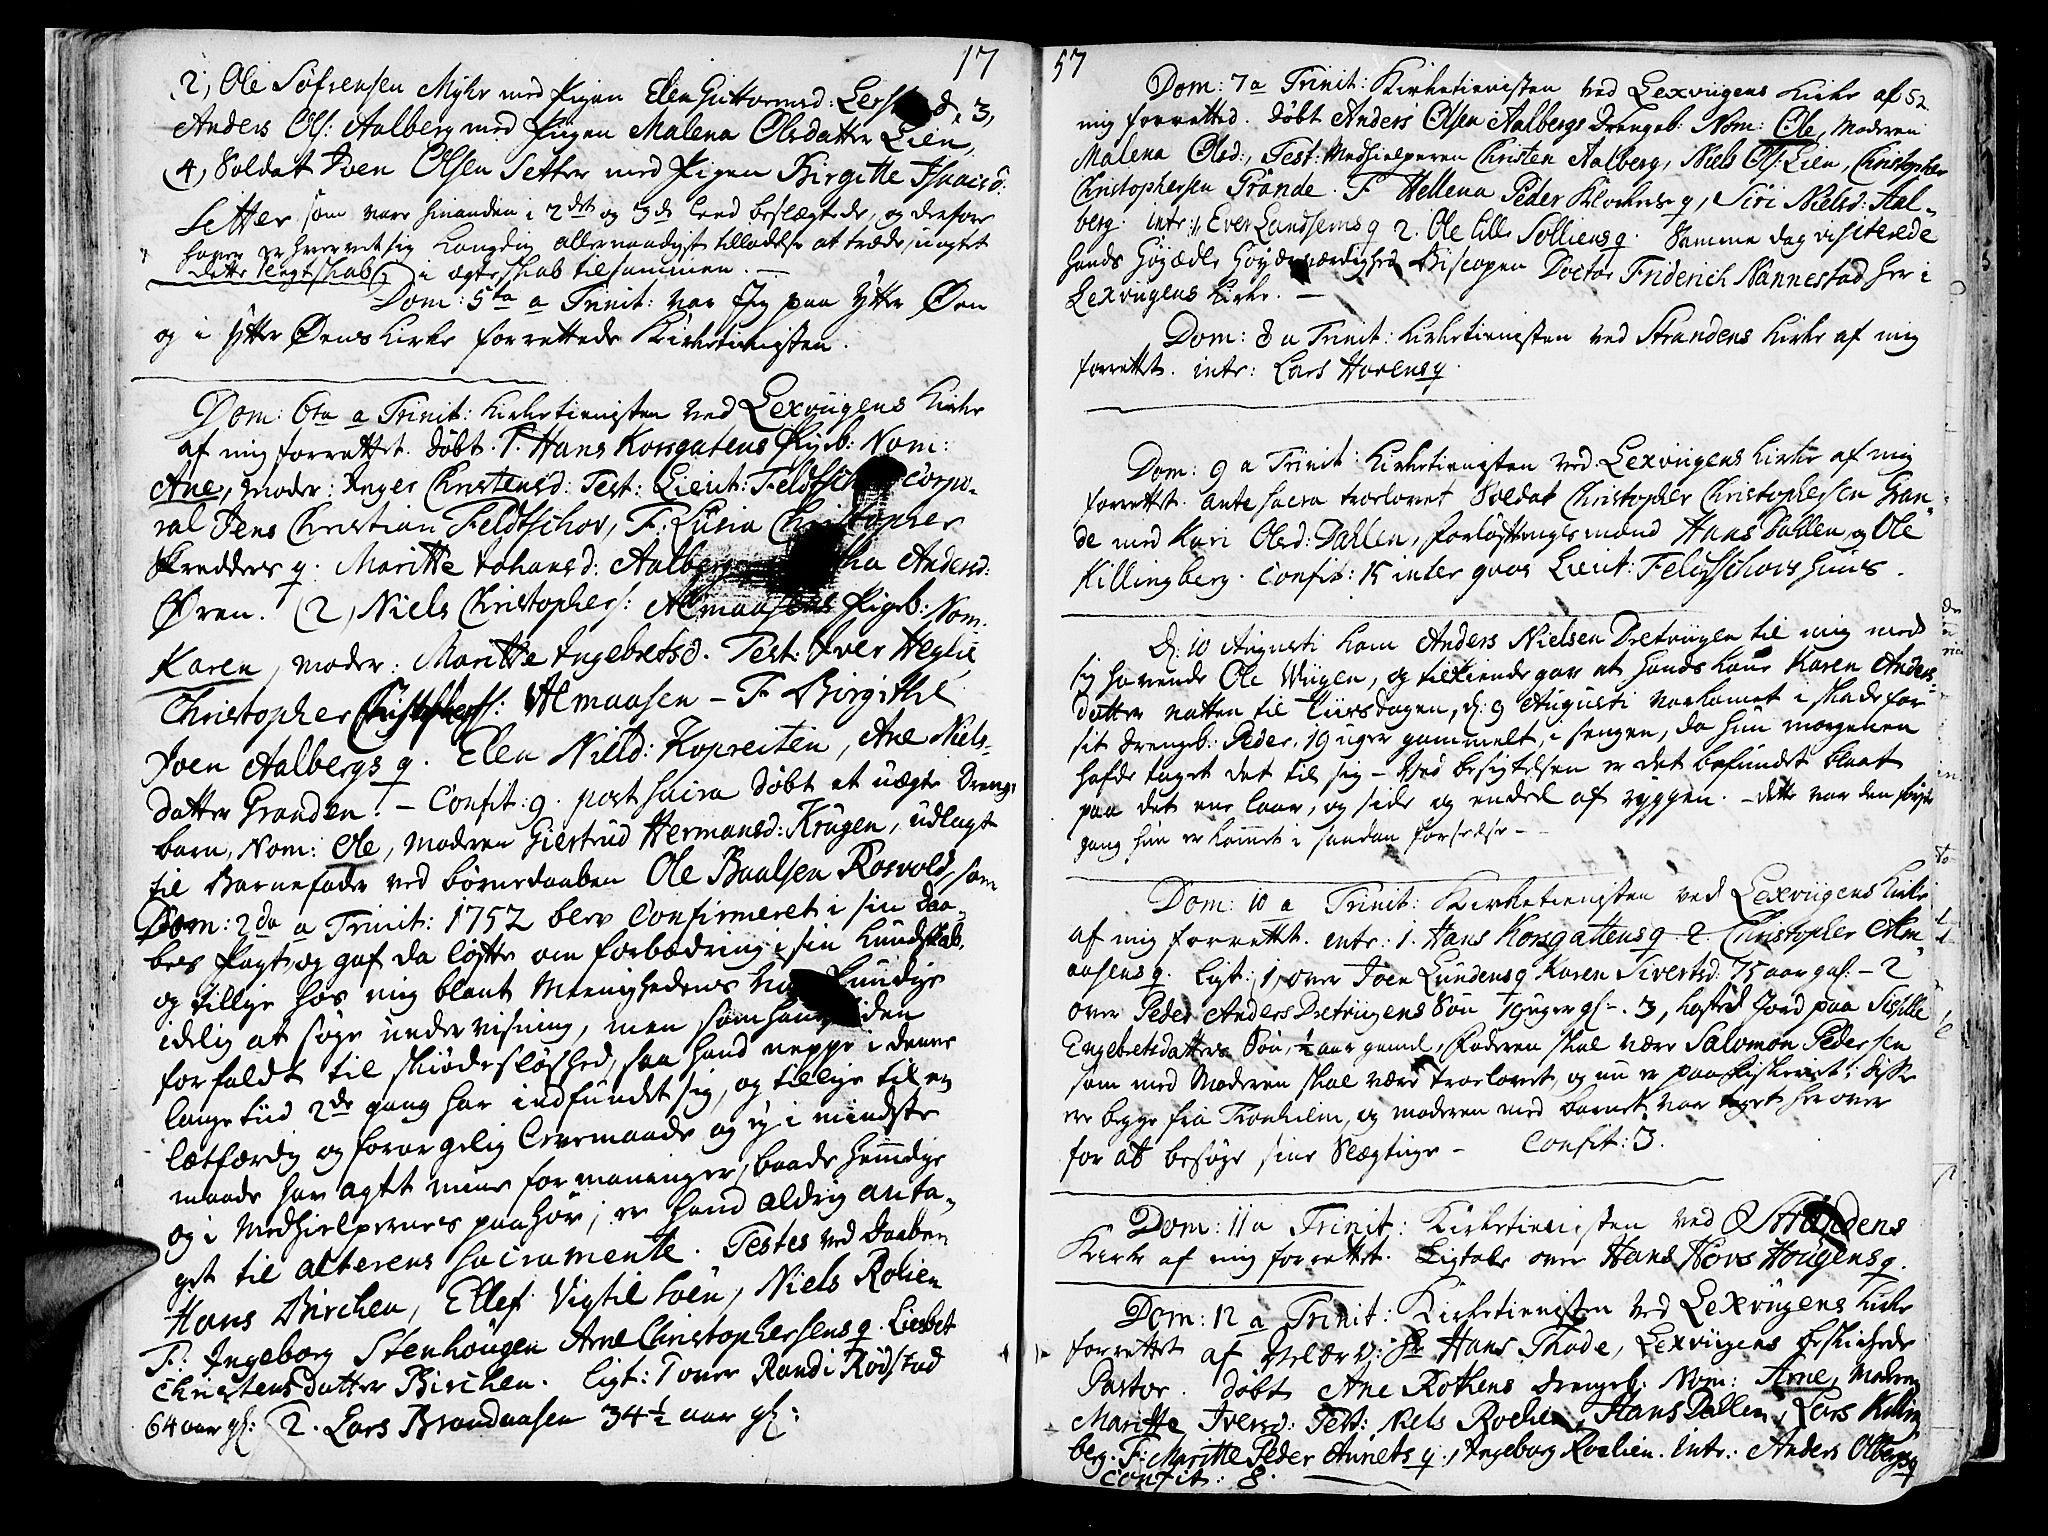 17
2, Ole Söfrensen Myhr med Pigen Elen Guttormsd: Lers d. 3,
Anders Ols: Aalberg med Pigen Malena Olsdatter Lien,
4, Soldat Joen Olsen Setter med Pigen Birgitte Isaacsd:
Setter som vare hinanden i 2det og 3de Leed beslægtede, og derfore
haver erhvervet sig Kongelig allernaadigst tilladelse at træde uagtet
dette Slegtskab i ægteskab tilsammen. —
Dom: 5ta a Trinit: var Jeg paa Ytter Øen
og i Ytter Øens Kirke forrettede Kirketienisten.
Dom: 6ta a Trinit: Kirketienisten ved Lexvügens Kirke
af mig forrettet. Døbt. 1. Hans Korsgatens Pigeb: Nom:
Ane, Moder: Inger Christensd: Test: Lieut: Feldtschov Corpo-
ral Jens Christian Feldtschov, F: Lusia Christopher
Skredders q. Maritte Johansd: Aalberg Andersd:
Øren. (2) Niels Christophers: Almaasens Pigeb: Nom.
Karen, moder: Maritte Ingebretsd. Test: Iver Heglie
Christopher Christophers: Almaasen - F Birgithe
Joen Aalbergs q. Elen Nielsd: Kopreiten, Ane Niels-
datter Granden. - Confit: 9. post sacra døbt et uægte Drenge
barn, Nom: Ole, Moderen Giertrud Hermansd: Krugen, udlagt
til Barnefader ved børnedaaben Ole Baalsen Rosvold, som
Dom: 2da a Trinit: 1752 blev Confirmeret i sin Daa-
bes Pagt, og gaf da løfte om forbædring i sin Kundskab,
og tillige hos mig blant Meenighedens Kundige
idelig at søge undervisning, men som hand siden
forfaldt til skiødesløshed, saa hand neppe i denne
lange tiid 2de gang har indfundet sig, og tillige til en
lætfærdig og forargelig Levemaade og ey i mindste
maade har agtet mine formaninger, baade hemmelige
og i Medhielpernes paahør; er hand aldrig anta-
get til alterens sacramente. Testes ved Daaben
Hans Birchen, Ellef Vigtil Loen, Niels Rolien
F: Ingeborg Stenhougen Arne Christophersens q. Liesbet
Christensdatter Birchen. Ligt: 1 over Randi Rødstad
64 aar gl: 2. Lars Brandaasen 34½ aar gl:
57
Dom: 7 a Trinit: Kirketienisten ved Lexvügens Kirke af 52
mig forrettet. Døbt Anders Olsen Aalbergs Drengeb: Nom: Ole, Moderen
Malena Olsd:, Test: Medhielperen Christen Aalberg, Niels Ols: Lien, Christopher
Christophersen Grande. F Hellena Peder Klockers q, Siri Nielsd: Aal-
berg. intr: 1, Ever Landsems q 2. Ole lille Solliens q. Samme dag visiterede
hands Høyædle Høyærværdighed Biscopen Doctor Friderich Nannestad her i
Lexvügens Kirke. —
Dom: 8 a Trinit: Kirketienisten ved Strandens Kirke af mig
forrettet. intr: Lars Hovens q.
Dom: 9 a Trinit: Kirketienisten ved Lexvügens Kirke af mig
forrettet. ante sacra trolovet Soldat Christopher Christophersen Gran-
de med Kari Olsd: Dallen, forløftningsmænd Hans Dallen, og Ole
Killingberg. Confit: 15 inter qvos Lieut: Feldtschovs huus.
D: 10 Augusti kom Anders Nielsen Dretvügen til mig med
sig havende Ole Wiigen, og tilkiendegav at hands Kone Karen Anders-
datter natten til Tiirsdagen, d: 9 Augusti var kommet i skade for
sit Drengeb: Peder, 19 uger gammelt, i sengen, da hun morgenen
hafde taget det til sig - Ved besigtelsen er det befundet blaat
paa det ene laar, og side og endeel af ryggen. - dette var den første
gang hun er kommet i saadan forseelse -
Dom: 10 a Trinit: Kirketienisten ved Lexvügens Kirke
af mig forrettet. intr: 1. Hans Korsgattens q. 2. Christopher Alm-
aasens q. Ligt: 1, over Joen Lundens q Karen Sivertsd: 75 aar gl: - 2
over Peder Anders Dretvügens Søn 19 uger gl -. 3, kasted Jord paa Sissille
Engebretsdatters Søn, ½ aar gamel, Faderen skal være Salomon Pedersen
som med Moderen skal være trolovet, og nu er paa Fiskeriet; disse
ere begge fra Tronhiem, og moderen med barnet var taget her over
for at besøge sine Slægtinge - Confit: 3.
Dom: 11 a Trinit: Kirketienisten ved Strandens
Kirke af mig forrettet. Ligtale over Hans Hovs Hougens q.
Dom: 12 a Trinit: Kirketienisten ved Lexvügens Kirke
forrettet af Velærv: Hr Hans Thode, Lexvügens beskikkede
Pastor. Døbt Ane Rothens Drengeb: Nom: Arne, Moderen
Maritte Iversd: Test: Niels Rochen, Hans Dallen, Lars Killing
berg. F: Maritte Peder Aunets q., Ingeborg Roelien. Intr: Anders Olbergs q
Confit: 8.